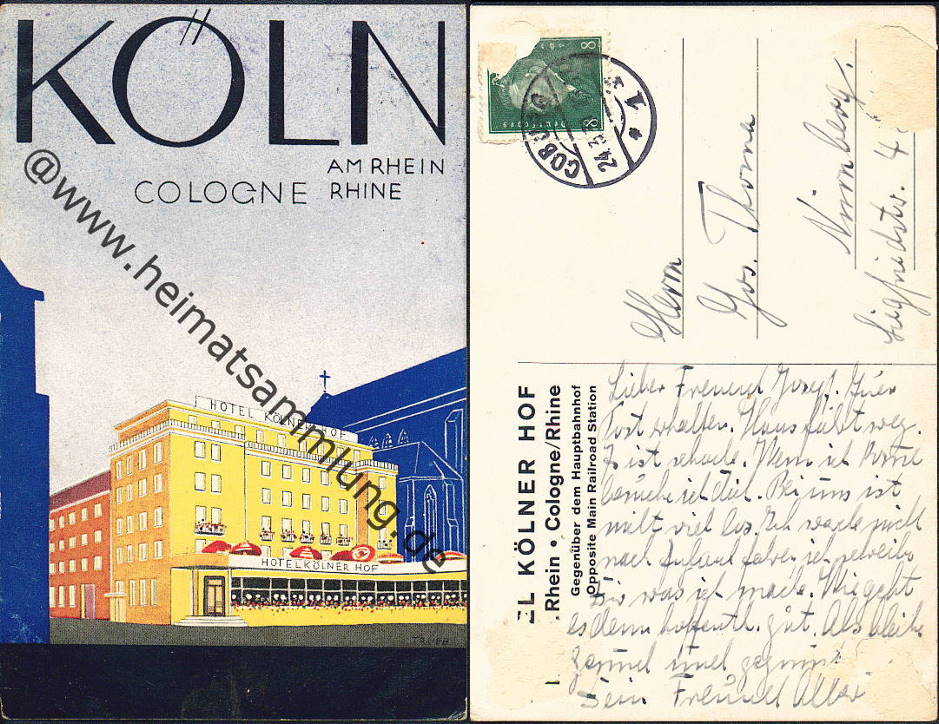 KÖLN
AM RHEIN
COLOGNE RHINE
@www.heimatsammlung.de
HOTEL KÖLNER HOF
HOTEL KÖLNER HOF
TRUEB
8 8
Deutsches
COB
24.3.
1
Herrn
Jos. Thoma
Nürnberg.
Siegfriedstr. 4
EL KÖLNER HOF
Rhein • Cologne/Rhine
Gegenüber dem Hauptbahnhof
Opposite Main Railroad Station
Lieber Freund Josef.
Post erhalten. Hans fährt weg.
ist schade. Wenn ich komme
besuche ich dich. Bei uns ist
nicht viel los. Ich werde nicht
nach fahren ich schreibe
Dir was ich mache. Wie geht
es denn hoffentl. gut. Also bleibe
gesund und
Dein Freund